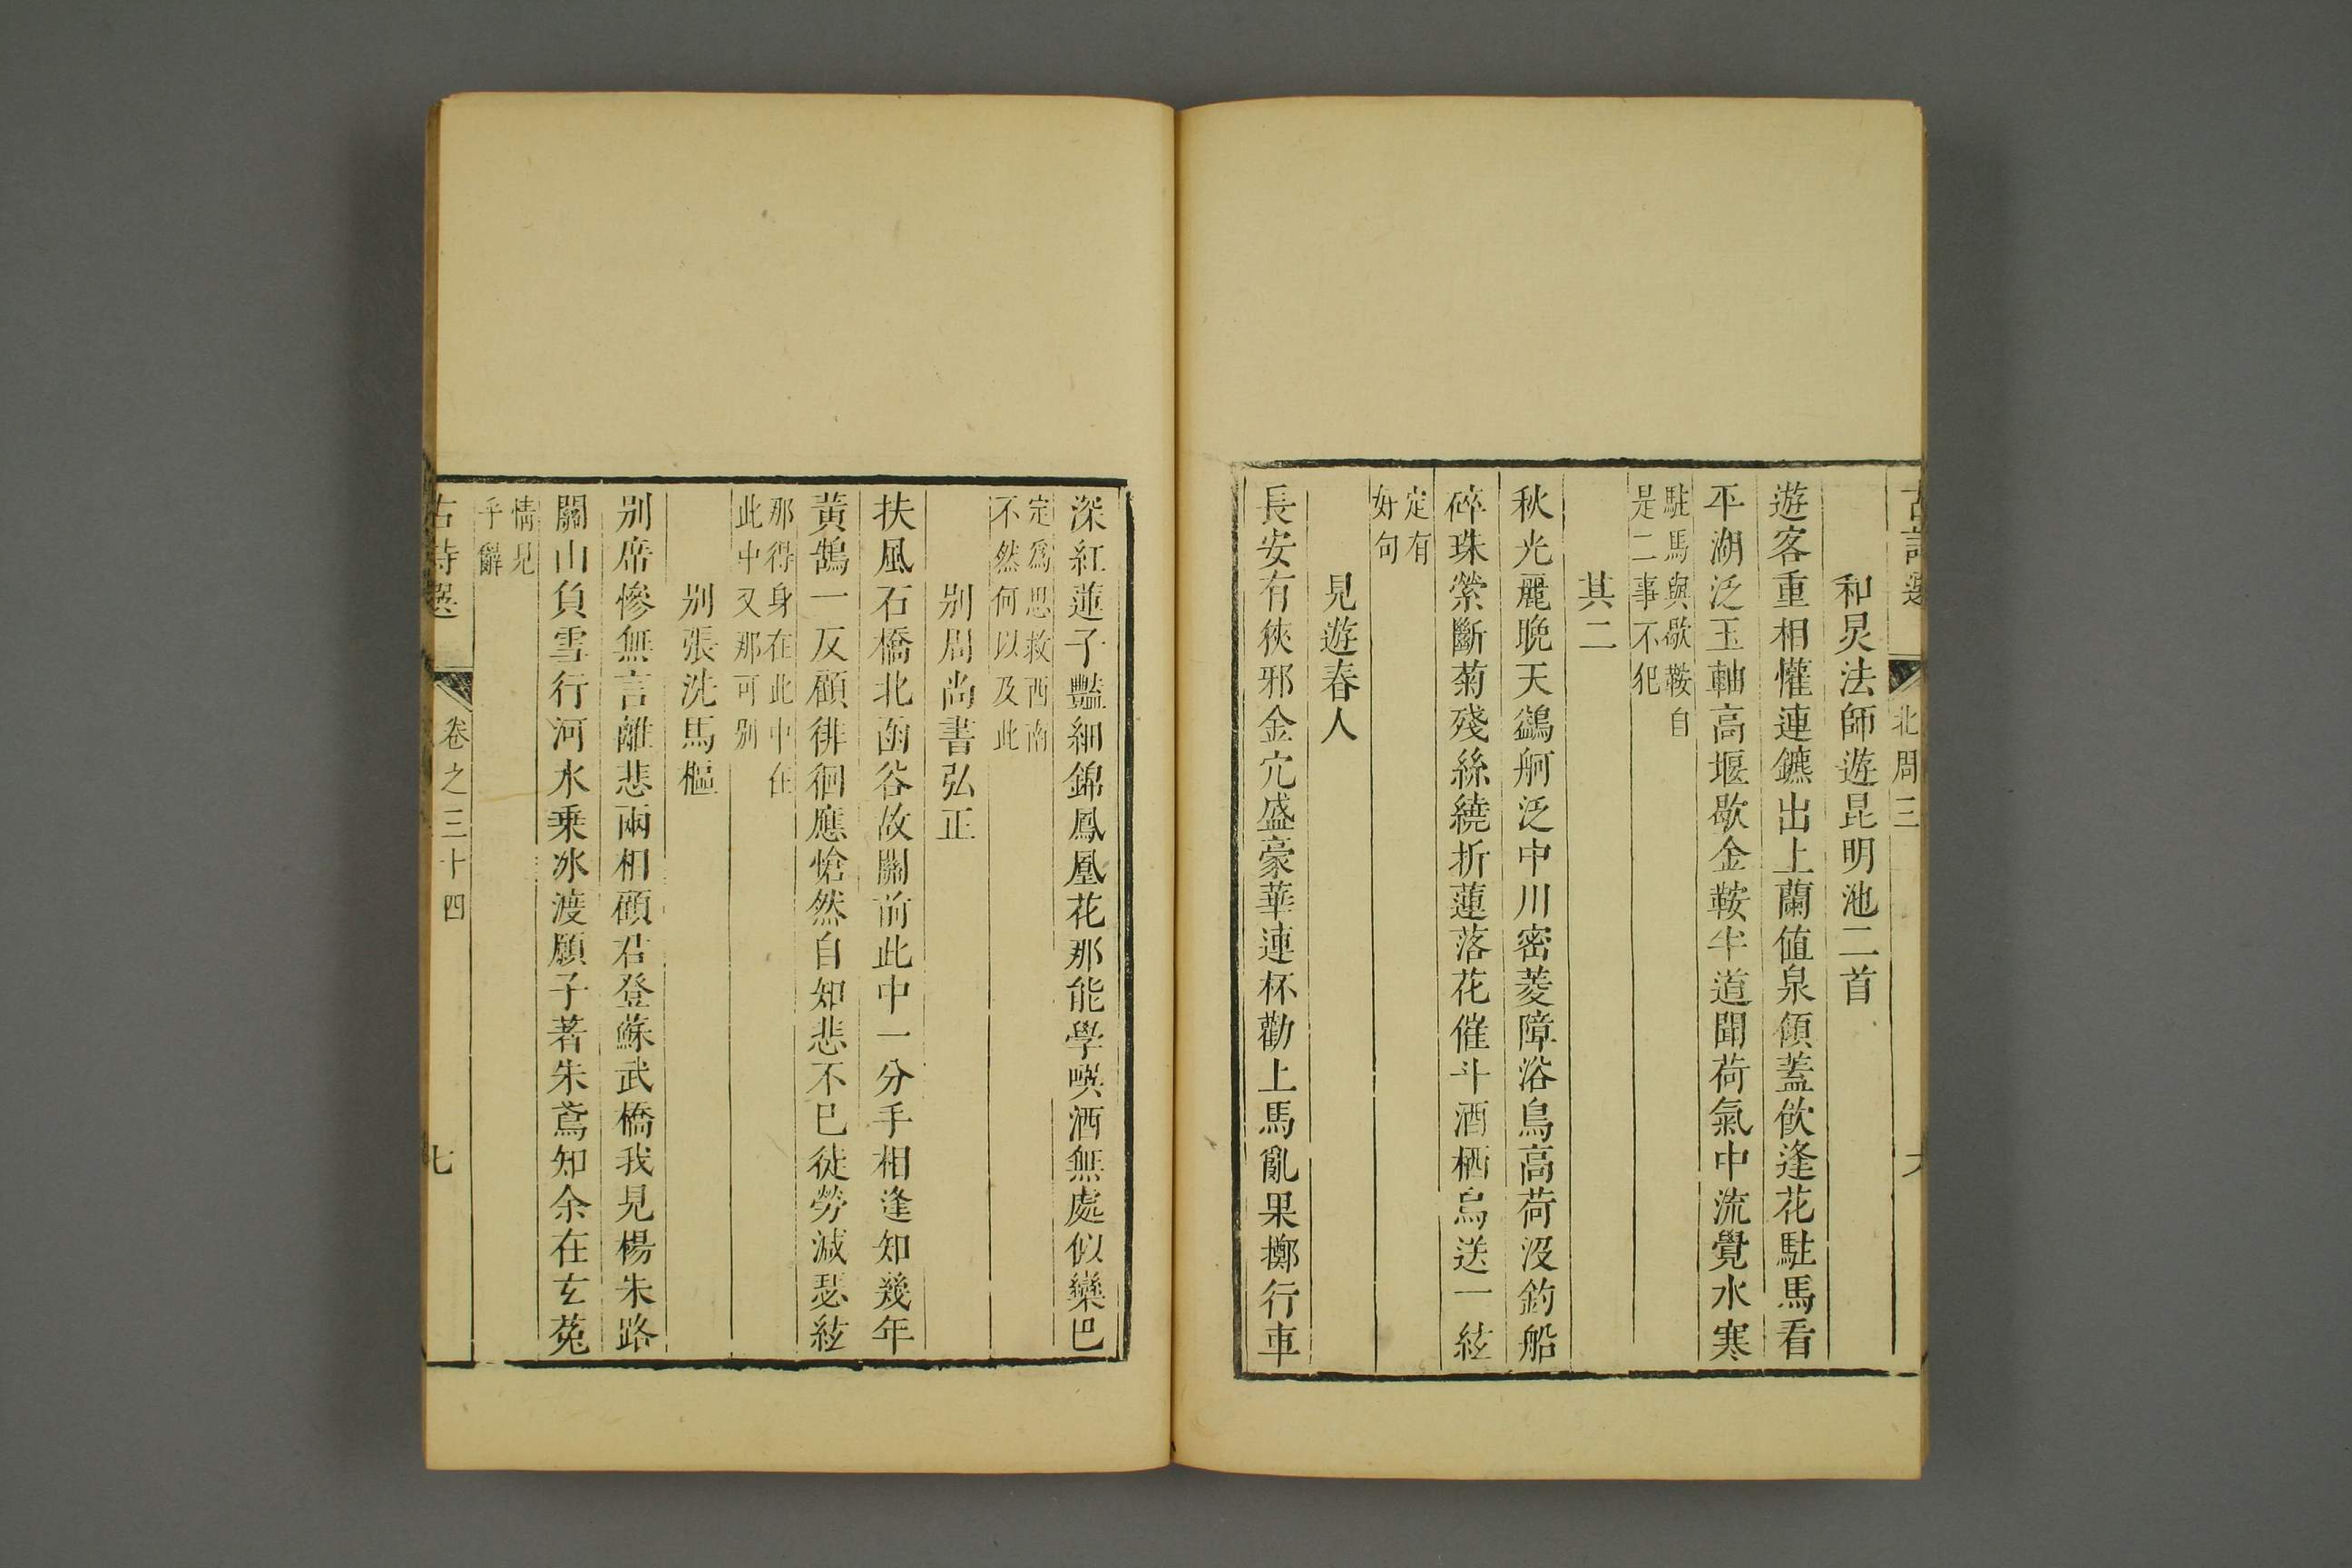 古詩選 北周三
和炅法師遊昆明池二首
遊客重相懽連鑣出上蘭値泉傾蓋飲逢花駐馬看
平湖泛玉軸高堰歇金鞍半道聞荷氣中流覺水寒
駐馬與歇鞍自
是二事不犯
其二
秋光麗晚天鷁舸泛中川密菱障浴鳥高荷沒釣船
碎珠縈斷菊殘絲繞折蓮落花催斗酒栖烏送一絃
定有
好句
見遊春人
長安有狹邪金穴盛豪華連杯勸上馬亂果擲行車
深紅蓮子豔細錦鳳凰花那能學噀酒無處似欒巴
定爲思救西南
不然何以及此
别周尚書弘正
扶風石橋北函谷故關前此中一分手相逢知幾年
黃鵠一反顧徘徊應愴然自知悲不已徒勞減瑟絃
那得身在此中住
此中又那可别
别張洗馬樞
别席慘無言離悲兩相顧君登蘇武橋我見楊朱路
關山負雪行河水乗冰渡願子著朱鳶知余在玄菟
情見
乎辭
古詩選 卷之三十四 七